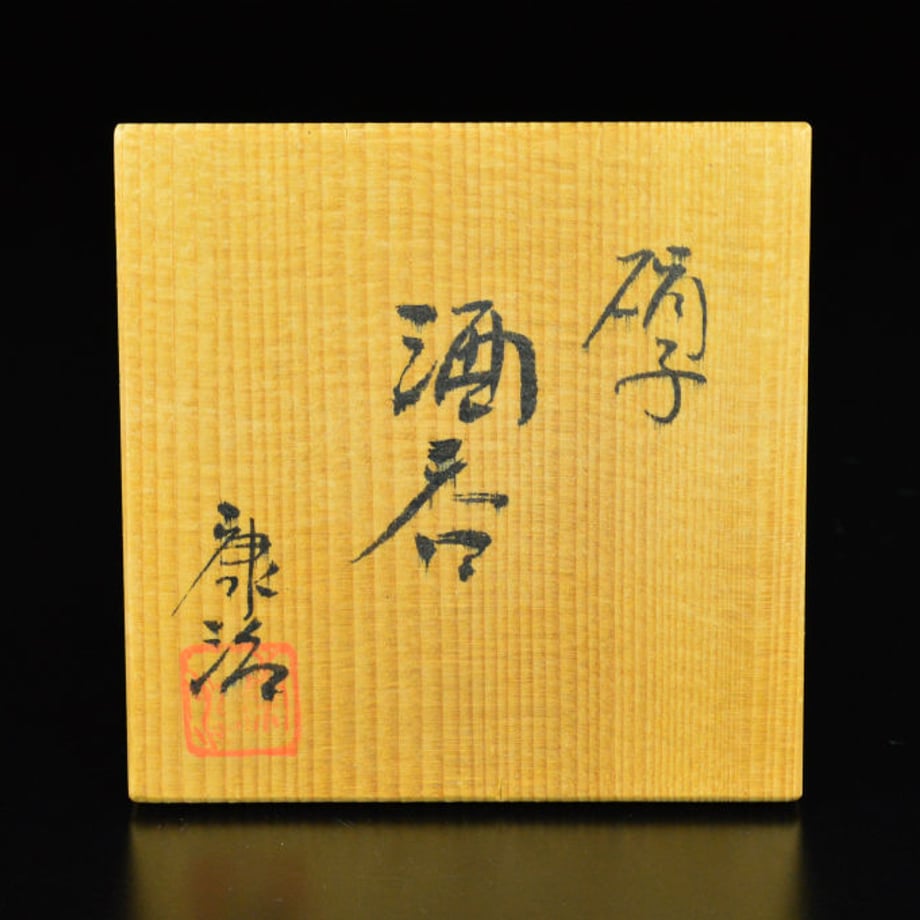 硝子
酒呑
康治